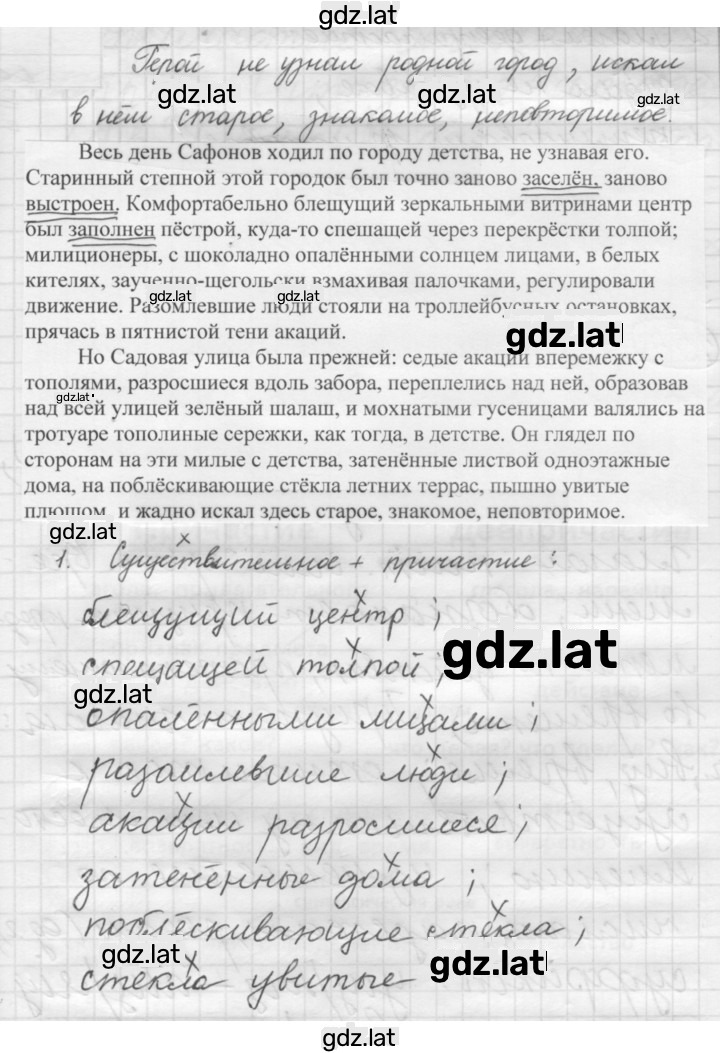 gdz.lat
Герой не узнал родной город, искал
gdz.lat gdz.lat gdz.lat
в нём старое, знакомое, неповторимое.
Весь день Сафонов ходил по городу детства, не узнавая его.
Старинный степной этой городок был точно заново заселён, заново
выстроен. Комфортабельно блещущий зеркальными витринами центр
был заполнен пёстрой, куда-то спешащей через перекрёстки толпой;
милиционеры, с шоколадно опалёнными солнцем лицами, в белых
кителях, заученно-щегольски взмахивая палочками, регулировали
gdz.lat gdz.lat
движение. Разомлевшие люди стояли на троллейбусных остановках,
прячась в пятнистой тени акаций.
gdz.lat
Но Садовая улица была прежней: седые акации вперемежку с
тополями, разросшиеся вдоль забора, переплелись над ней, образовав
gdz.lat
над всей улицей зелёный шалаш, и мохнатыми гусеницами валялись на
тротуаре тополиные сережки, как тогда, в детстве. Он глядел по
сторонам на эти милые с детства, затенённые листвой одноэтажные
дома, на поблёскивающие стёкла летних террас, пышно увитые
плющом, и жадно искал здесь старое, знакомое, неповторимое.
gdz.lat
x
1. Существительное + причастие:
блещущий центр;
спещащей толпой;
gdz.lat
gdz.lat
опалёнными лицами;
разомлевшие люди;
акации разросшиеся;
затенённые дома;
поблёскивающие стёкла;
gdz.lat gdz.lat
стёкла увитые
gdz.lat